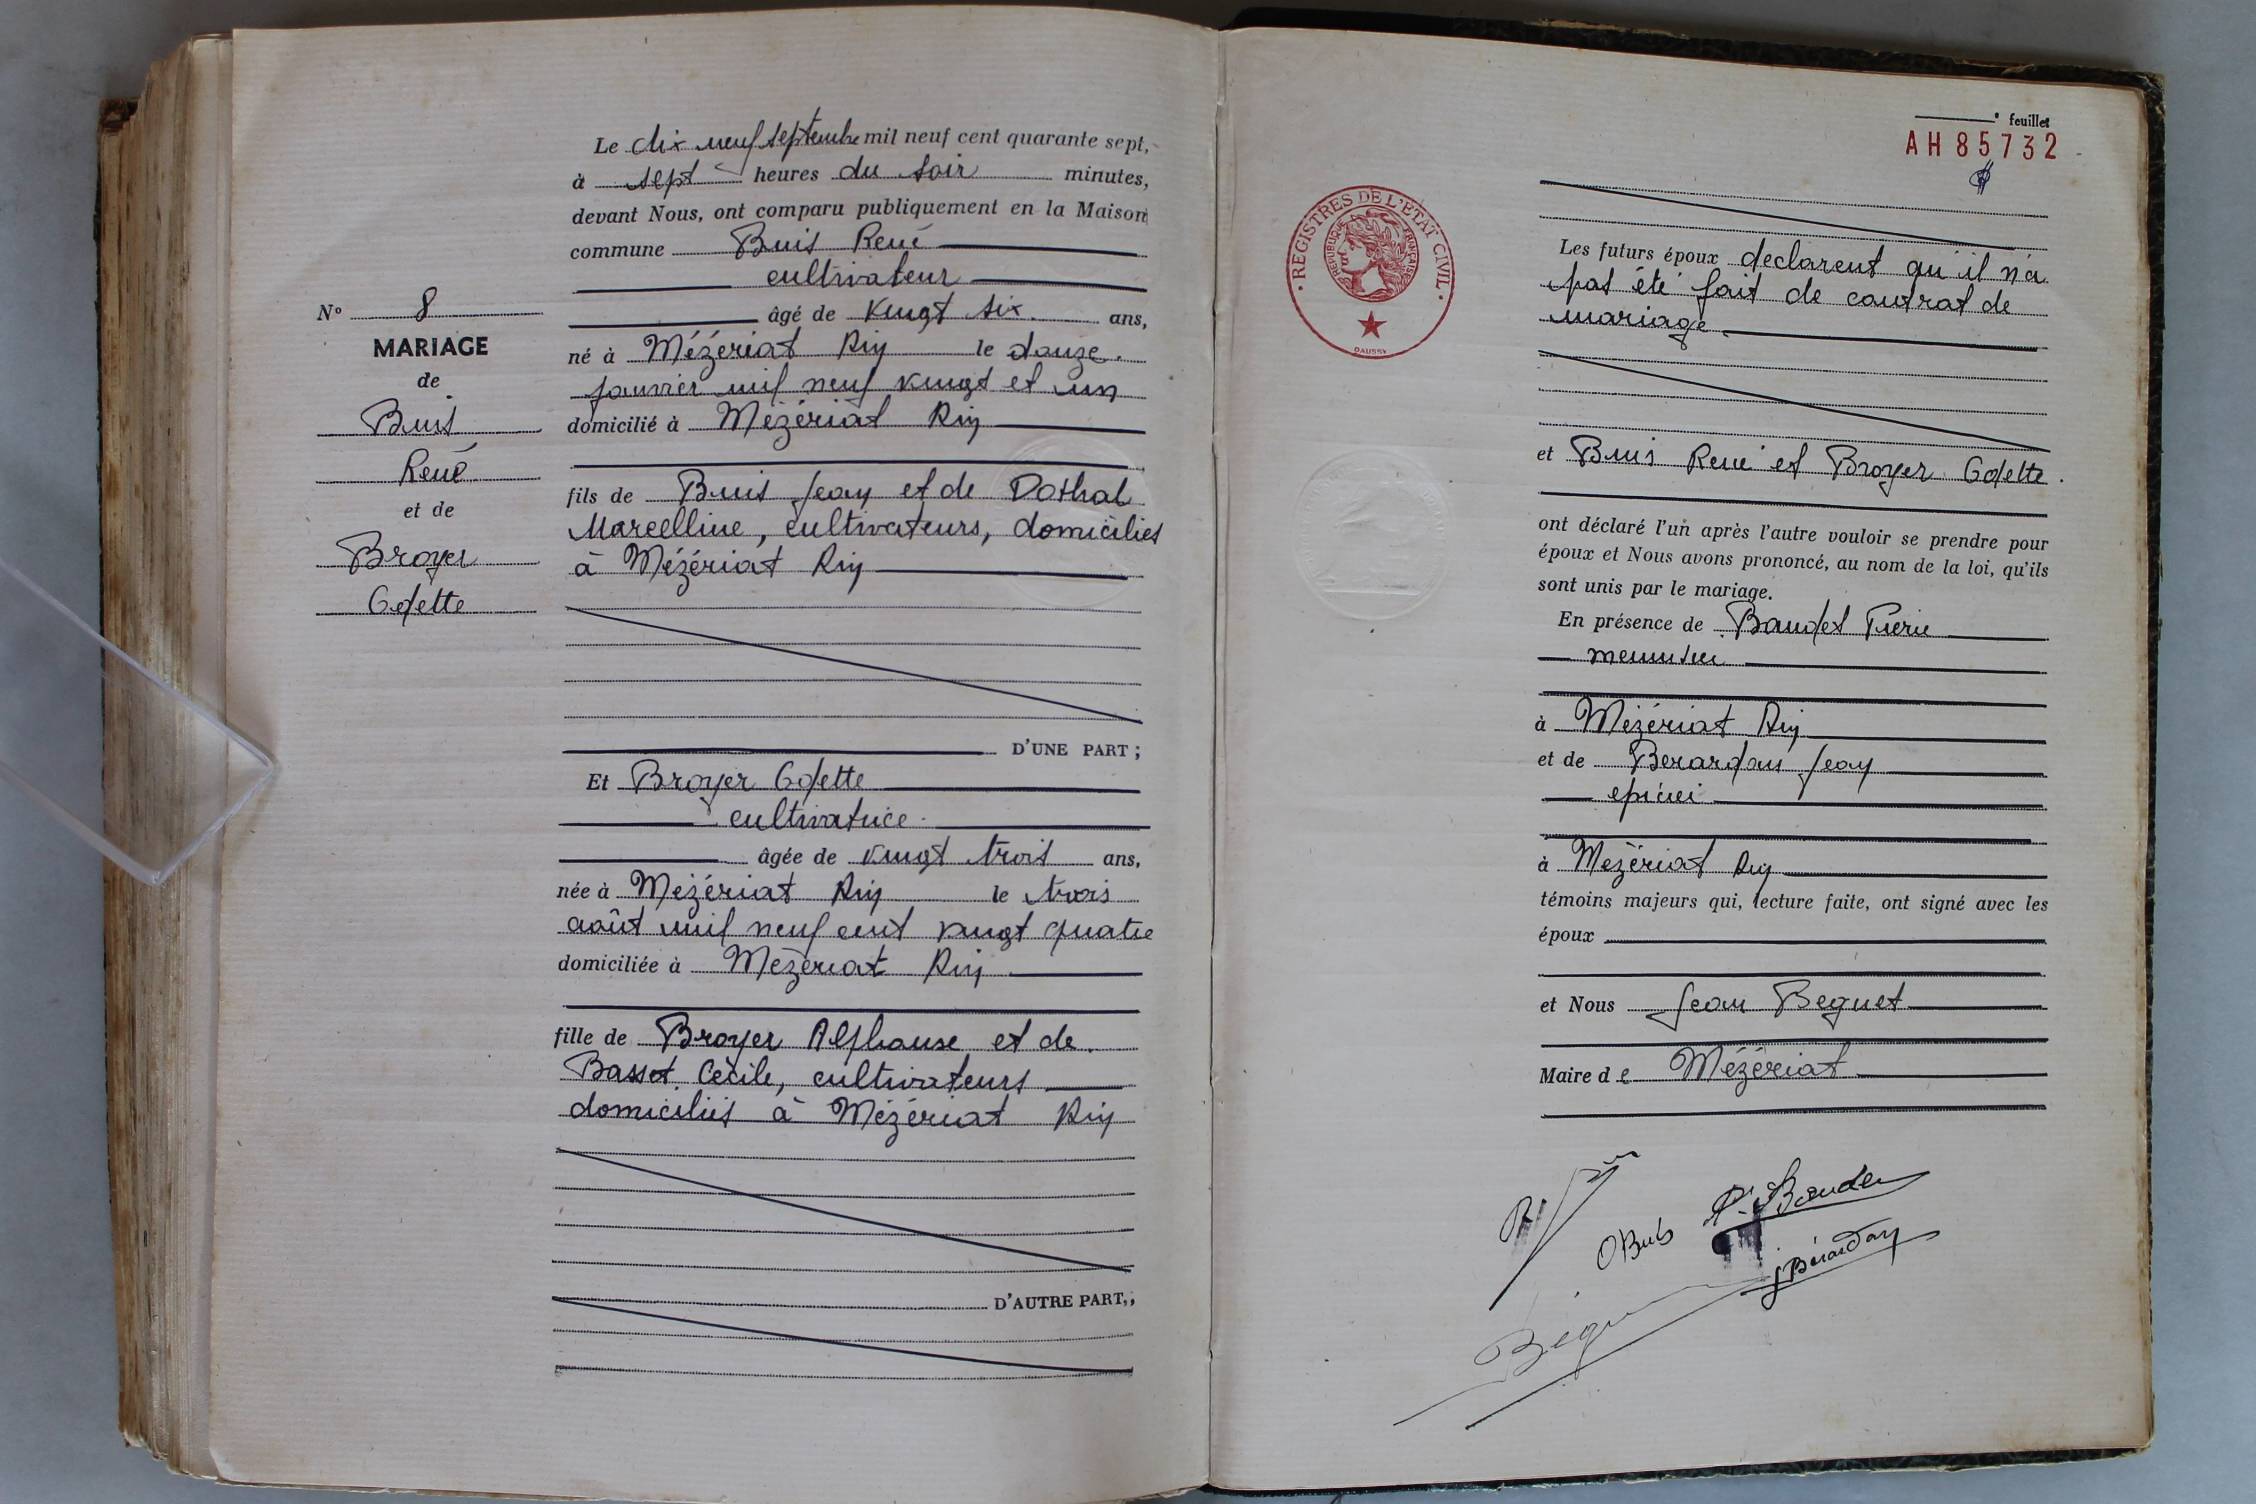 Le dix neuf septembre mil neuf cent quarante sept,
à sept heures du soir minutes,
devant Nous, ont comparu publiquement en la Maison
commune Buis René
cultivateur
âgé de vingt six ans,
né à Mézériat Ain le douze
janvier mil neuf vingt et un
domicilié à Mézériat Ain
fils de Buis Jean et de Dothal
Marcelline, cultivateurs, domiciliés
à Mézériat Ain
D'UNE PART ;
Et Broyer Odette
cultivatrice
âgée de vingt trois ans,
née à Mézériat Ain le trois
août mil neuf cent vingt quatre
domiciliée à Mézériat Ain
fille de Broyer Alphonse et de
Basset Cécile, cultivateurs
domiciliés à Mézériat Ain
D'AUTRE PART,
N° 8
MARIAGE
de
Buis
René
et de
Broyer
Odette
feuillet
AH 85732
REGISTRES DE L'ETAT CIVIL
REPUBLIQUE FRANÇAISE
DAUSSY
Les futurs époux declarent qu'il n'a
pas été fait de contrat de
mariage
et Buis René et Broyer Odette.
ont déclaré l'un après l'autre vouloir se prendre pour
époux et Nous avons prononcé, au nom de la loi, qu'ils
sont unis par le mariage.
En présence de Baudet Pierre
menuisier
à Mézériat Ain
et de Berardan Jean
epicier
à Mézériat Ain
témoins majeurs qui, lecture faite, ont signé avec les
époux
et Nous Jean Beguet
Maire de Mézériat
OBuis
P. Baudet
J Bérardan